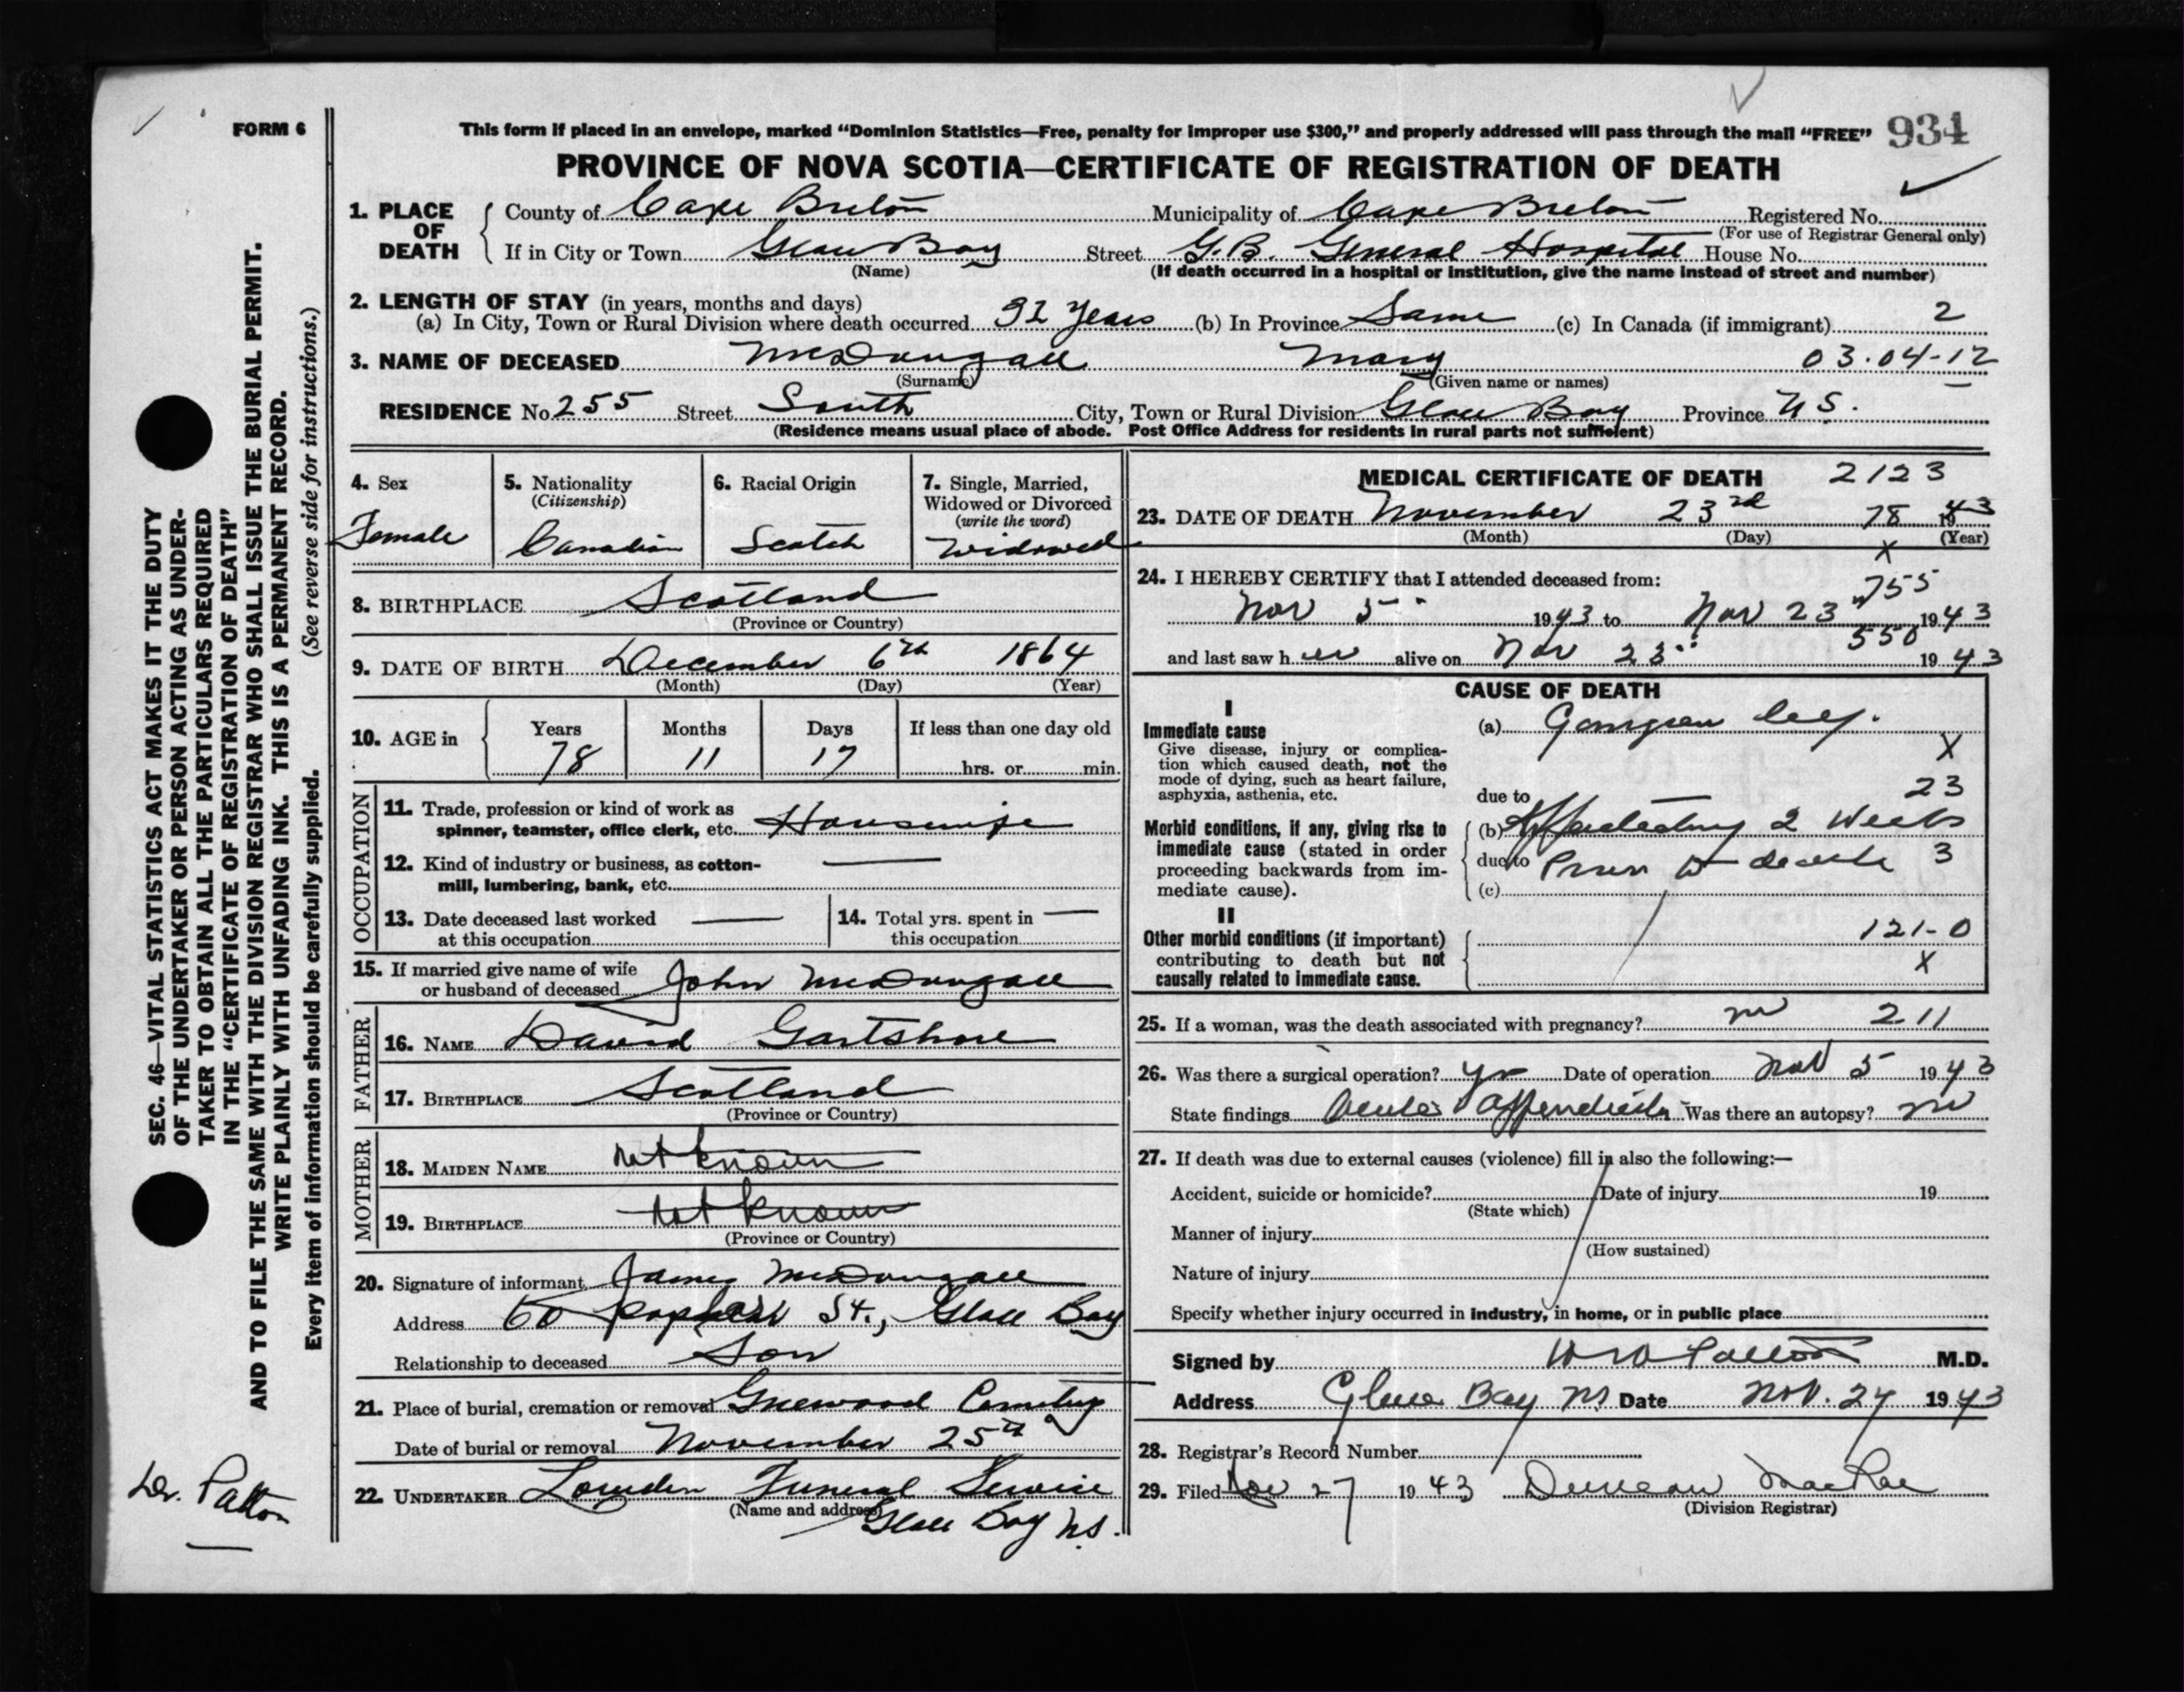 FORM 6
This form if placed in an envelope, marked "Dominion Statistics—Free, penalty for improper use $300," and properly addressed will pass through the mail "FREE" 934
PROVINCE OF NOVA SCOTIA—CERTIFICATE OF REGISTRATION OF DEATH
1. PLACE OF DEATH County of Cape Breton Municipality of Cape Breton Registered No.
(For use of Registrar General only)
If in City or Town Glace Bay Street G.B. General Hospital House No.
(Name) (If death occurred in a hospital or institution, give the name instead of street and number)
2. LENGTH OF STAY (in years, months and days)
(a) In City, Town or Rural Division where death occurred 32 Years (b) In Province Same (c) In Canada (if immigrant) 2
3. NAME OF DECEASED McDougall Mary 03.04-12
(Surname) (Given name or names)
RESIDENCE No. 255 Street South City, Town or Rural Division Glace Bay Province N S.
(Residence means usual place of abode. Post Office Address for residents in rural parts not sufficient)
4. Sex
Female
5. Nationality
(Citizenship)
Canadian
6. Racial Origin
Scotch
7. Single, Married,
Widowed or Divorced
(write the word)
Widowed
8. BIRTHPLACE Scotland
(Province or Country)
9. DATE OF BIRTH December 6th 1864
(Month) (Day) (Year)
10. AGE in Years Months Days If less than one day old
78 11 17 hrs. or min.
OCCUPATION
11. Trade, profession or kind of work as
spinner, teamster, office clerk, etc. Housewife
12. Kind of industry or business, as cotton-
mill, lumbering, bank, etc. —
13. Date deceased last worked —
at this occupation
14. Total yrs. spent in —
this occupation
15. If married give name of wife
or husband of deceased John McDougall
FATHER
16. NAME David Gartshore
17. BIRTHPLACE Scotland
(Province or Country)
MOTHER
18. MAIDEN NAME Not known
19. BIRTHPLACE Not known
(Province or Country)
20. Signature of informant James McDougall
Address 60 St., Glace Bay
Relationship to deceased Son
21. Place of burial, cremation or removal Greenwood Cemetery
Date of burial or removal November 25th
22. UNDERTAKER Funeral Service
(Name and address)
Glace Bay N.S.
MEDICAL CERTIFICATE OF DEATH 2123
23. DATE OF DEATH November 23rd 78 1943
(Month) (Day) X (Year)
24. I HEREBY CERTIFY that I attended deceased from:
755
Nov 5 1943 to Nov 23 1943
550
and last saw her alive on Nov 23 1943
CAUSE OF DEATH
I
Immediate cause
Give disease, injury or complica-
tion which caused death, not the
mode of dying, such as heart failure,
asphyxia, asthenia, etc.
(a)
X
due to 23
Morbid conditions, if any, giving rise to
immediate cause (stated in order
proceeding backwards from im-
mediate cause).
(b) 2 Weeks
due to Prior to death 3
(c)
II
Other morbid conditions (if important)
contributing to death but not
causally related to immediate cause.
121-0
X
25. If a woman, was the death associated with pregnancy? no 211
26. Was there a surgical operation? yes Date of operation Nov 5 1943
State findings Acute appendicitis Was there an autopsy? no
27. If death was due to external causes (violence) fill in also the following:—
Accident, suicide or homicide? Date of injury 19
(State which)
Manner of injury
(How sustained)
Nature of injury
Specify whether injury occurred in industry, in home, or in public place
Signed by Patton M.D.
Address Glace Bay NS Date Nov. 24 1943
28. Registrar's Record Number
29. Filed Nov 27 1943 Duncan MacRae
(Division Registrar)
SEC. 46—VITAL STATISTICS ACT MAKES IT THE DUTY
OF THE UNDERTAKER OR PERSON ACTING AS UNDER-
TAKER TO OBTAIN ALL THE PARTICULARS REQUIRED
IN THE "CERTIFICATE OF REGISTRATION OF DEATH"
AND TO FILE THE SAME WITH THE DIVISION REGISTRAR WHO SHALL ISSUE THE BURIAL PERMIT.
WRITE PLAINLY WITH UNFADING INK. THIS IS A PERMANENT RECORD.
Every item of information should be carefully supplied. (See reverse side for instructions.)
Dr. Patton